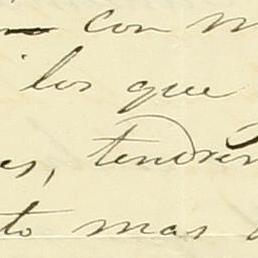 con m
los que
es, tendré
to mas